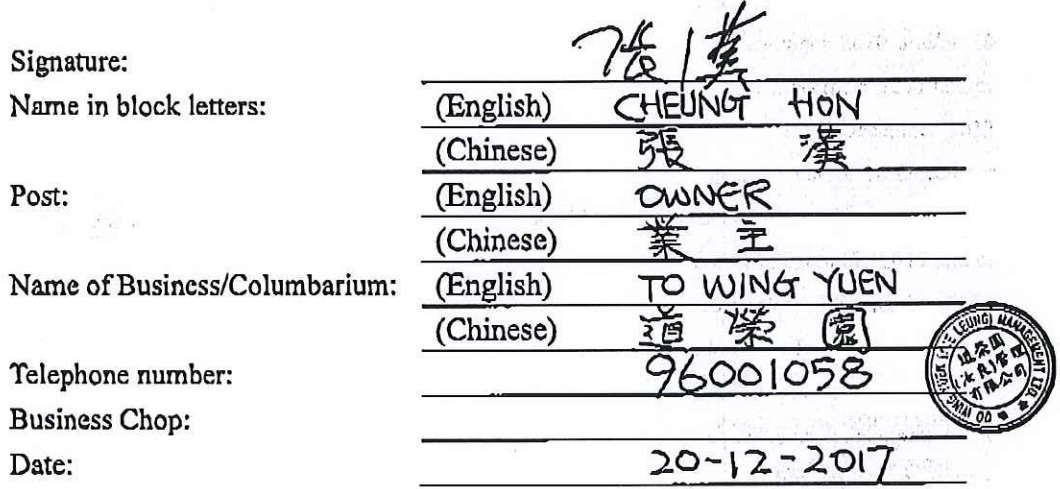 Signature: 張漢
Name in block letters: (English) CHEUNG HON
(Chinese) 張 漢
Post: (English) OWNER
(Chinese) 業 主
Name of Business/Columbarium: (English) TO WING YUEN
(Chinese) 道 榮 園
Telephone number: 96001058
Business Chop:
Date: 20-12-2017
道榮園
有限公司
MANAGEMENT LTD.